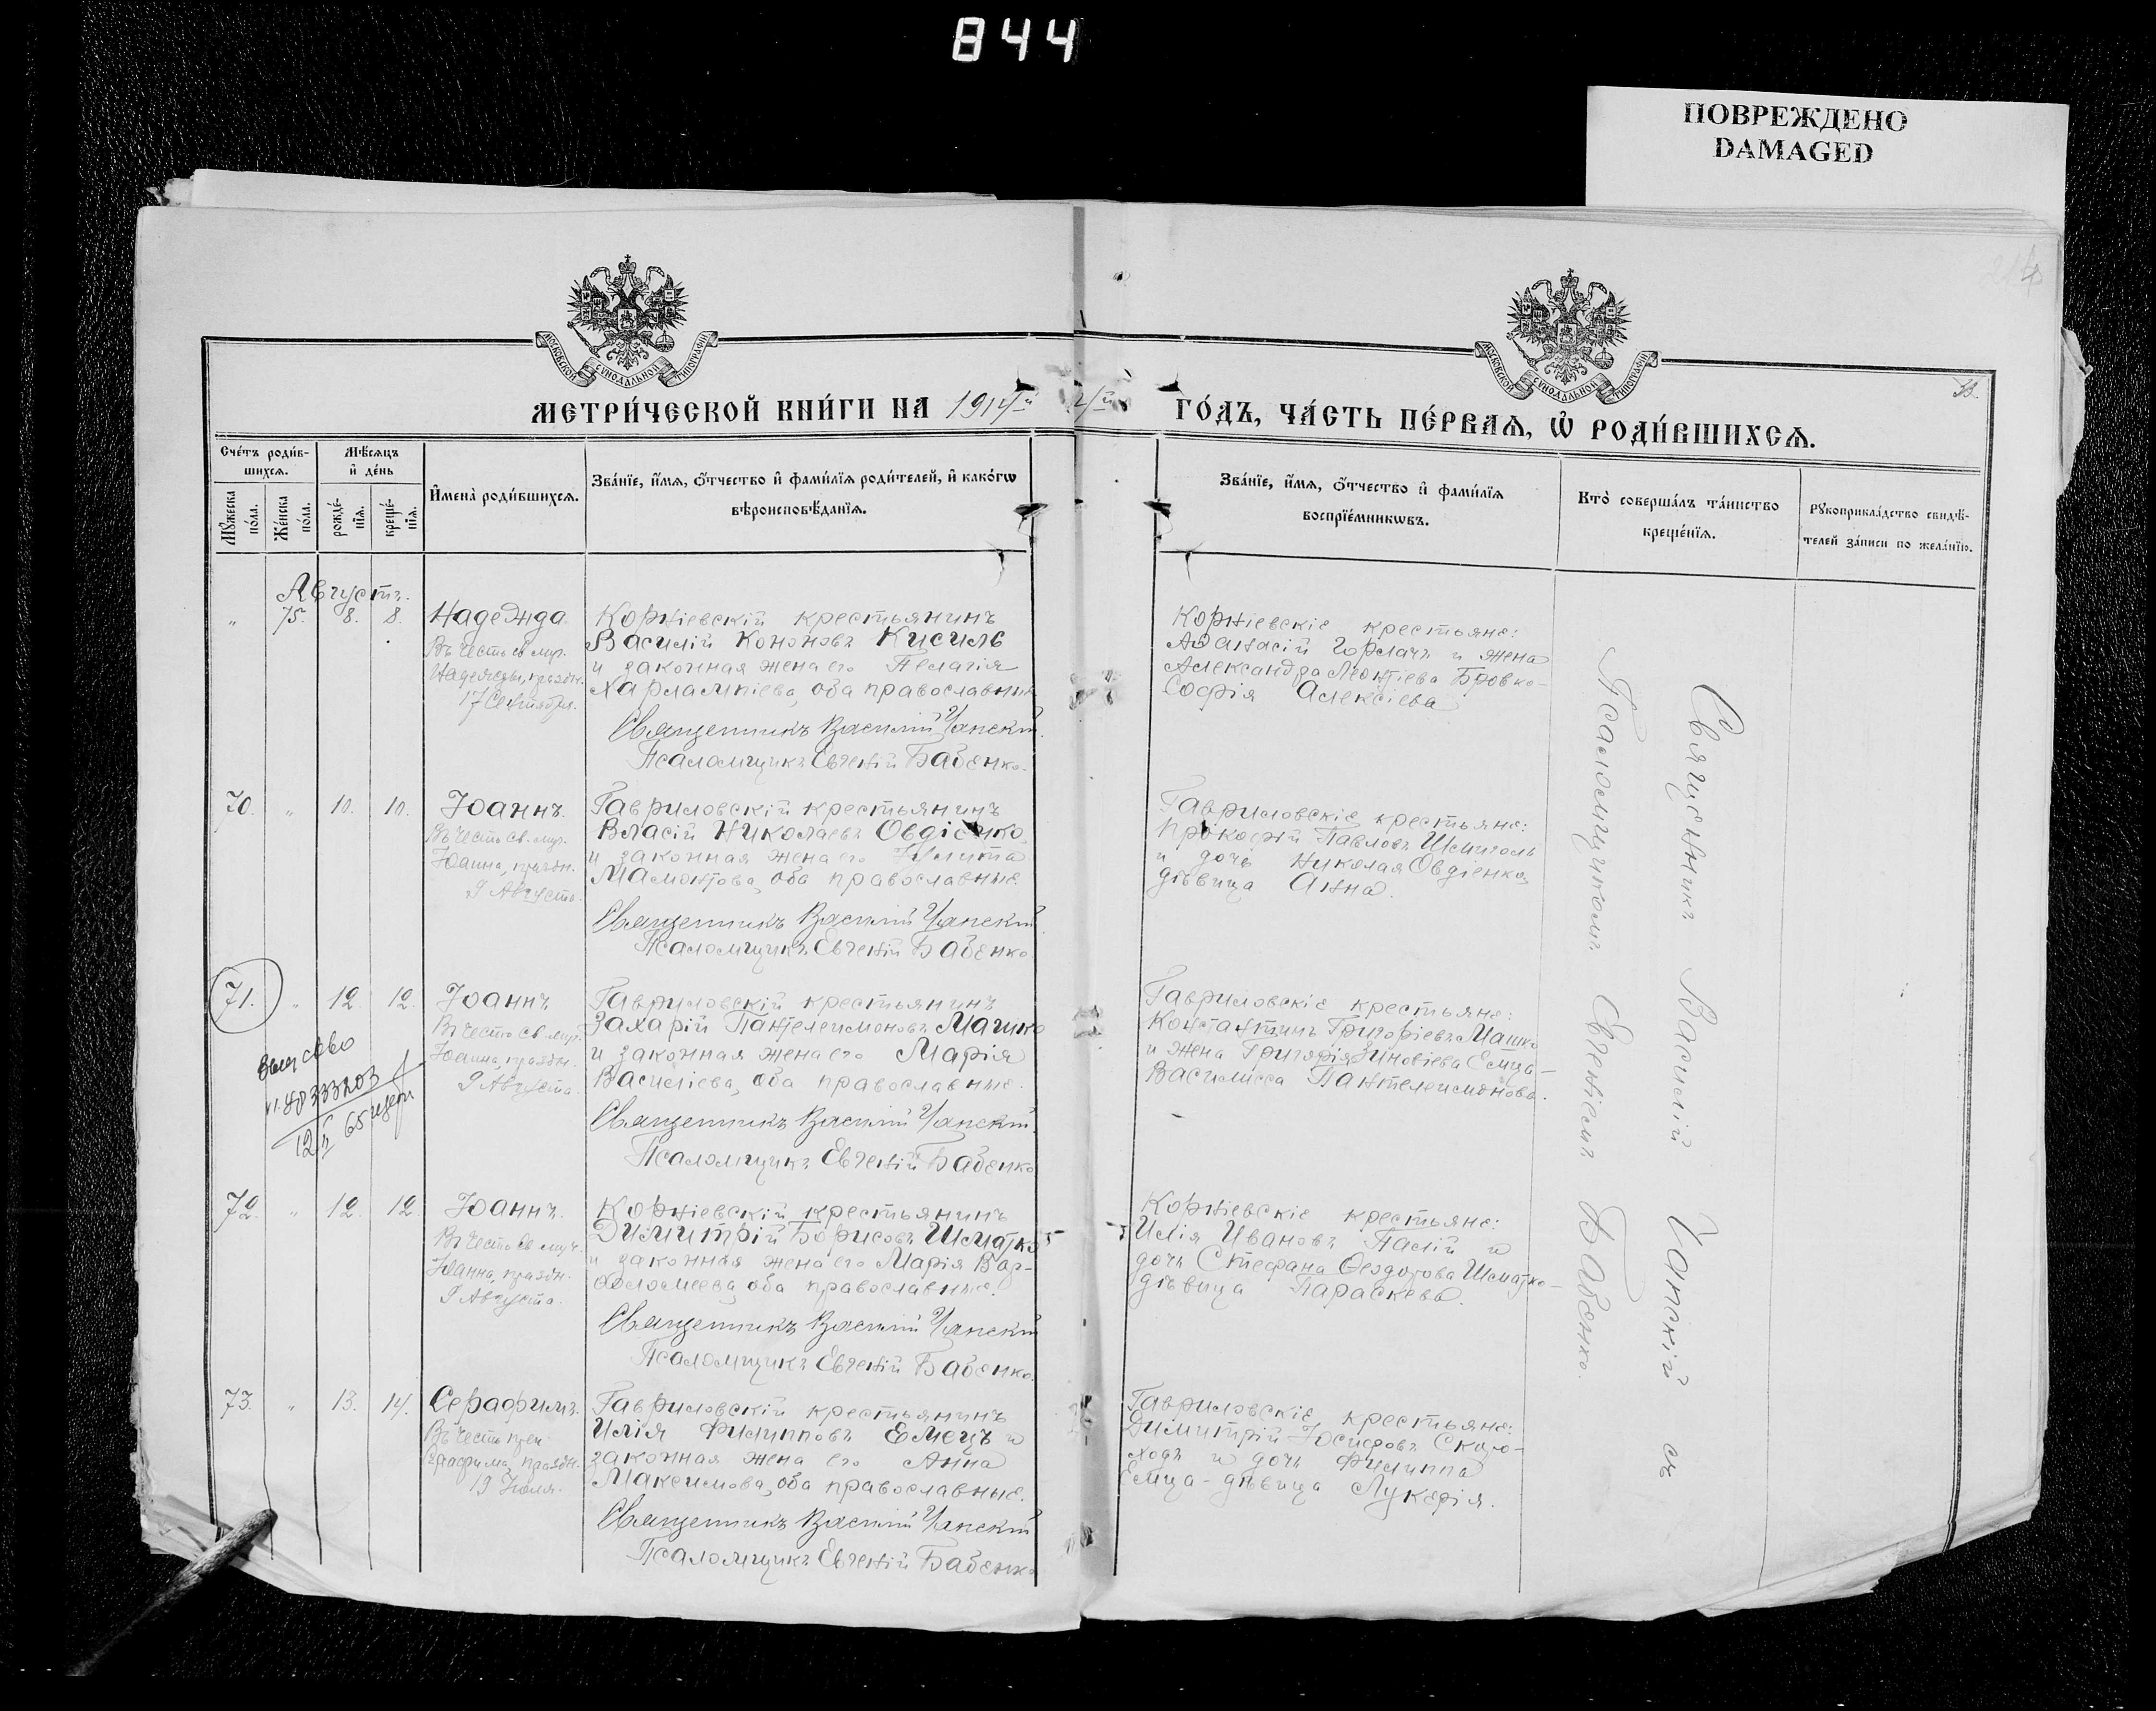 844
ПОВРЕЖДЕНО
DAMAGED
МОСКОВСКОЙ СѴНОДАЛЬНОЙ ТИПОГРАФІИ
МОСКОВСКОЙ СѴНОДАЛЬНОЙ ТИПОГРАФІИ
МЕТРИ́ЧЕСКОЙ КНИ́ГИ НА 1914й
ГО́ДЪ, ЧА́СТЬ ПЕ́РВАЯ, Ѡ҆ РОДИ́ВШИХСЯ.
Сче́тъ роди́в-
шихся.
Мѣ́сяцъ
и҆ де́нь
Мꙋ́жеска по́ла.
Же́нска по́ла.
рожде́-
нїя.
креще́-
нїя.
И҆мена̀ роди́вшихся.
Зва́нїе, и҆́мя, ѻ҆́тчество и҆ фами́лїя роди́телей, и҆ како́гѡ
вѣроисповѣ́данїя.
Зва́нїе, и҆́мя, ѻ҆́тчество и҆ фами́лїя
воспрїе́мникѡвъ.
Кто̀ соверша́лъ та́инство
креще́нїя.
Рꙋкоприкла́дство свидѣ́-
телей за́писи по жела́нїю.
Августъ.
" 75. 8. 8. Надежда.
Въ честь св. муч.
Надежды, праздн.
17 Сентября.
Корніевскій крестьянинъ
Василій Кононовъ Кисиль
и законная жена его Пелагія
Харлампіева, оба православные
Священникъ Василій Чапскій.
Псаломщикъ Евгеній Бабенко.
Корніевскіе крестьяне:
Аѳанасій Горлачъ и жена
Александра Леонтіева Бровко-
Софія Алексіева
70. " 10. 10. Іоаннъ.
Въ честь св. муч.
Іоанна, праздн.
9 Августа.
Гавриловскій крестьянинъ
Власій Николаевъ Овдіенко
и законная жена его
Мамонтова, оба православные.
Священникъ Василій Чапскій.
Псаломщикъ Евгеній Бабенко
Гавриловскіе крестьяне:
Прокофій Павловъ Шмиголь
и дочь Николая Овдіенко,
дѣвица Анна.
71. " 12. 12. Іоаннъ
Въ честь св. муч.
Іоанна, праздн.
9 Августа.
Гавриловскій крестьянинъ
Захарій Пантелеимоновъ Машко
и законная жена его Марія
Василіева, оба православные.
Священникъ Василій Чапскій.
Псаломщикъ Евгеній Бабенко
Гавриловскіе крестьяне:
Константинъ Григоріевъ Машко
и жена Григорія Зиновіева Емца-
Василисса Пантелеимонова.
72. " 12. 12. Іоаннъ.
Въ честь св. муч.
Іоанна, праздн.
9 Августа.
Корніевскій крестьянинъ
Димитрій Борисовъ Шматко
и законная жена его Марія Вар-
ѳоломеева, оба православные.
Священникъ Василій Чапскій
Псаломщикъ Евгеній Бабенко.
Корніевскіе крестьяне:
Илія Ивановъ Палій и
дочь Стефана Ѳеодорова Шматко-
дѣвица Параскева.
73. " 13. 14. Серафимъ.
Въ честь преп.
Серафима, праздн.
19 Іюля.
Гавриловскій крестьянинъ
Илія Филипповъ Емецъ и
законная жена его Анна
Максимова, оба православные.
Священникъ Василій Чапскій
Псаломщикъ Евгеній Бабенко
Гавриловскіе крестьяне:
Димитрій Іосифовъ Скоро-
ходъ и дочь Филиппа
Емца-дѣвица Лукерія.
Священникъ Василій Чапскій съ
Псаломщикомъ Евгеніемъ Бабенко.